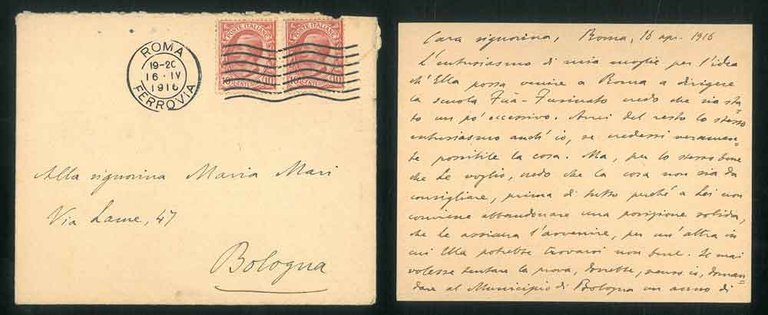 ROMA
19-20
16·IV
1916
FERROVIA
POSTE ITALIANE
POSTE ITALIANE
Alla signorina Maria Mari
Via Lame, 47
Bologna
Cara signorina, Roma, 16 apr. 1916
L'entusiasmo di mia moglie per l'idea
ch'Ella possa venire a Roma a dirigere
la scuola Fuà-Fusinato credo che sia sta-
to un po' eccessivo. Avrei del resto lo stesso
entusiasmo anch'io, se credessi veramen-
te possibile la cosa. Ma, per lo stesso bene
che Le voglio, credo che la cosa non sia da
consigliare, prima di tutto perché a Lei non
conviene abbandonare una posizione solida,
che Le assicura l'avvenire, per un'altra in
cui Ella potrebbe trovarsi non bene. Se mai
volesse tentare la prova, dovrebbe, penso io, doman-
dare al Municipio di Bologna un anno di